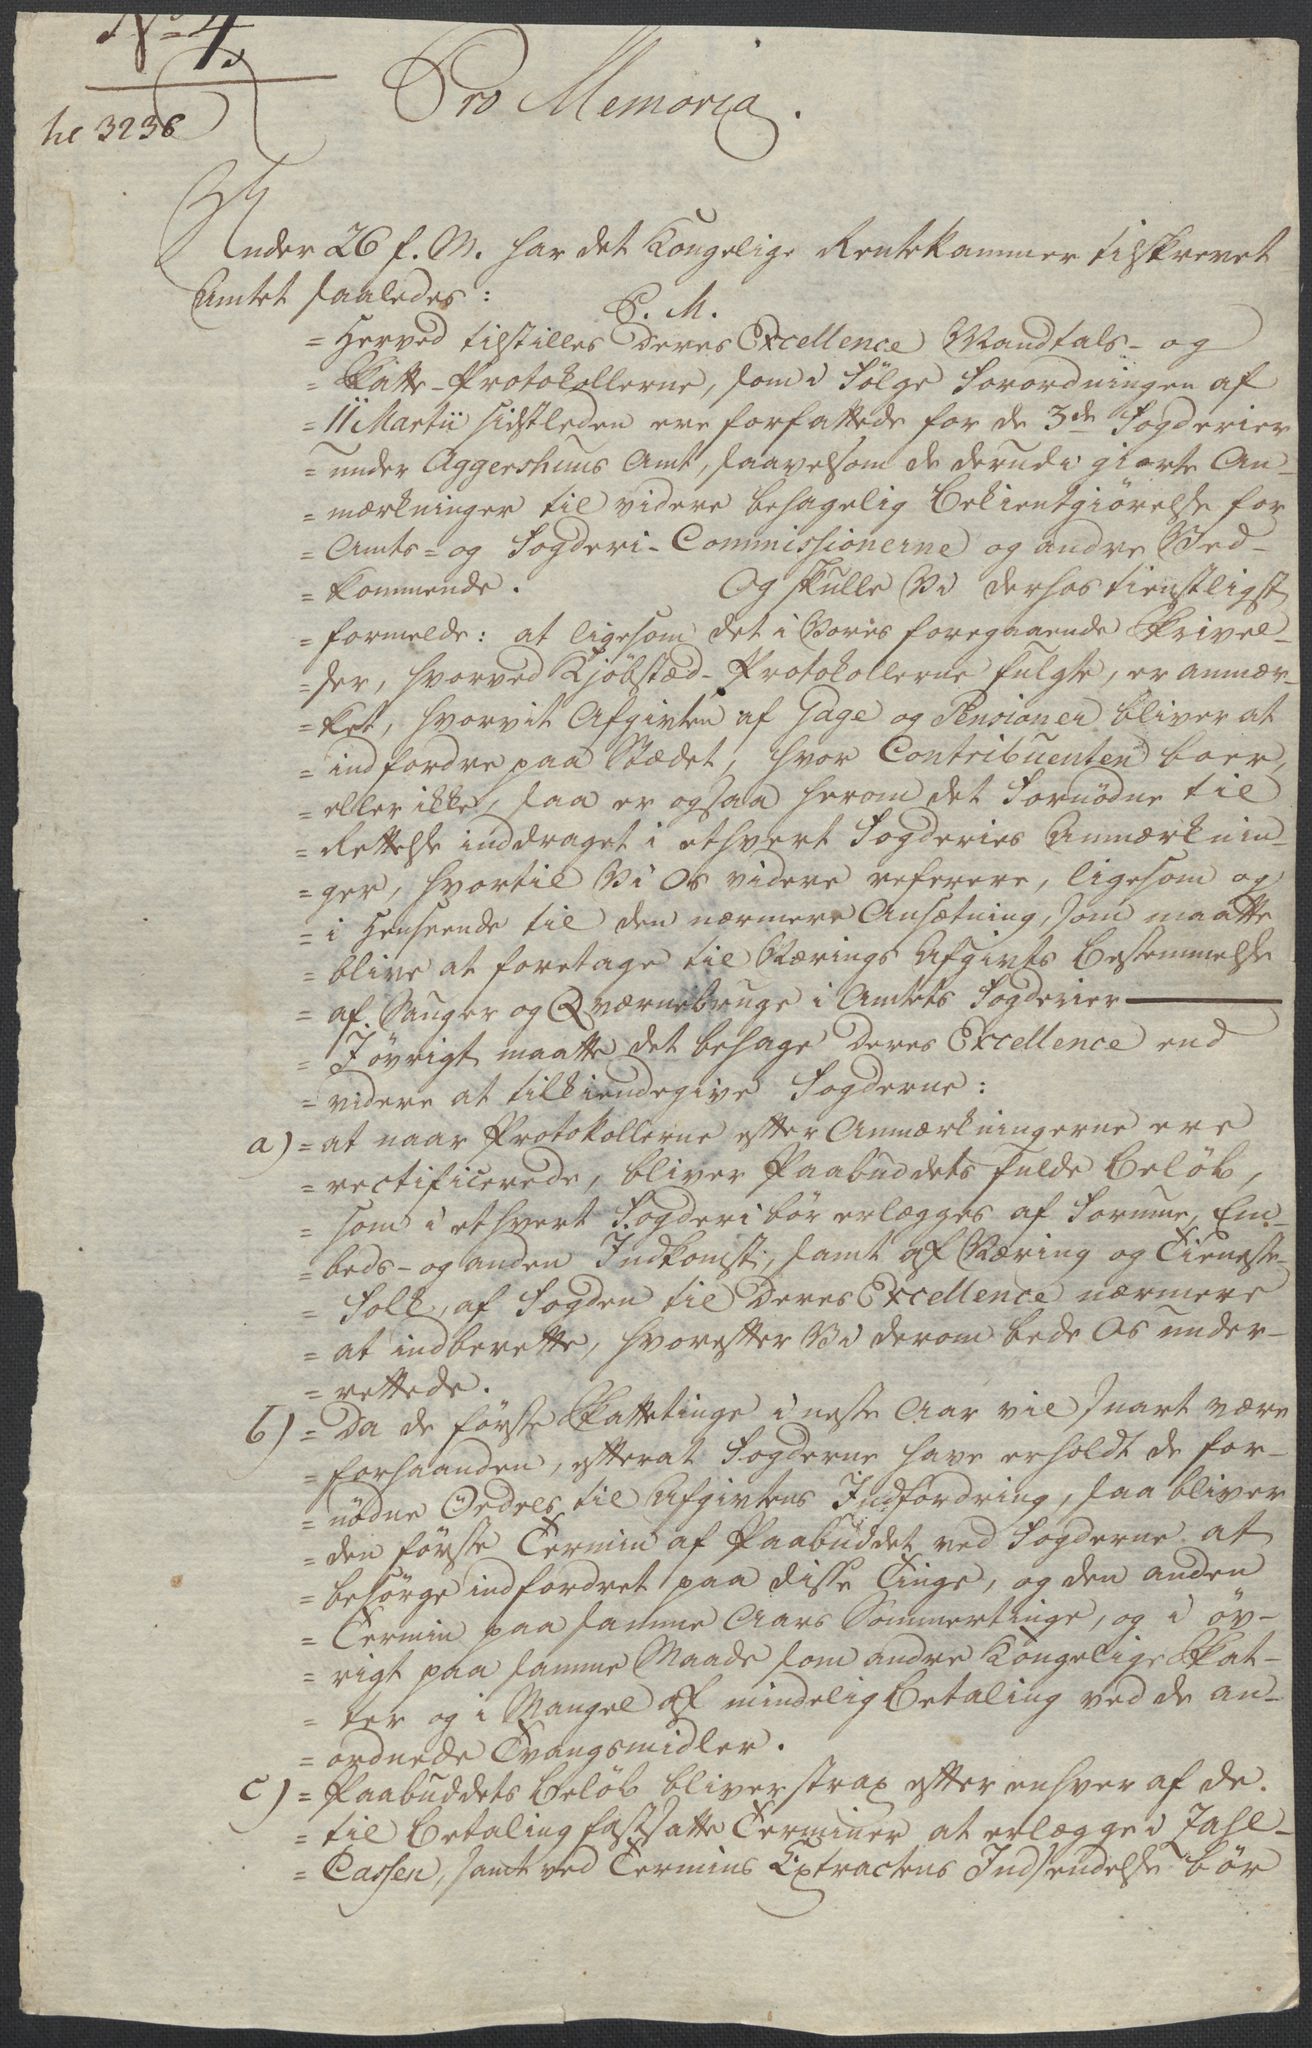 No 4
hc 3236
Pro Memoria.
Under 26 f. M. har det Kongelige Rentekammer tilskrevet
Amtet saaledes:
P. M.
= Herved tilstilles Deres Excellence Mandtals- og
= Skatte-Protokollerne, som i Fölge Forordningen af
= 11 Martii sidstleden ere forfattede for de 3de Fogderier
= under Aggershuus Amt, saavelsom de derudi giorte An-
= mærkninger til videre behagelig Bekientgiörelse for
= Amts- og Fogderi-Commissionerne og andre Ved-
= kommende. Og skulle Vi derhos tienstligst
= formelde: at ligesom det i Vores foregaaende Skrivel-
= ser, hvorved Kjöbstæd-Protokollerne fulgte, er anmær-
= ket, hvorvit Afgivten af Gage og Pensioner bliver at
= indfordre paa Stædet, hvor Contribuenten boer,
= eller ikke, saa er ogsaa herom det Fornödne til
= Rettelse inddraget i ethvert Fogderies Anmærknin-
= ger, hvortil Vi Os videre referere, ligesom og
= i Henseende til den nærmere Ansætning, som maatte
= blive at foretage til Nærings Afgivts Bestemmelse
= af Sauger og Qværnebruge i Amtets Fogderier
= I övrigt maatte det behage Deres Excellence end
= videre at tilkiendegive Fogderne:
a) = at naar Protokollerne efter Anmærkningerne ere
= rectificerede, bliver Paabuddets fulde Belöb,
= som i ethvert Fogderi bör erlægges af Formue, Em-
= beds- og anden Indkomst, samt af Næring og Tieneste-
= Folk, af Fogden til Deres Excellence nærmere
= at indberette, hvorefter Vi derom bede Os under-
= rettede.
b) = Da de förste Skattetinge i neste Aar vil snart være
= forhaanden, efterat Fogderne have erholdt de for-
= nödne Ordres til Afgivtens Indfordring, saa bliver
= den förste Termin af Paabuddet ved Fogderne at
= besörge indfordret paa disse Tinge, og den anden
= Termin paa samme Aars Sommertinge, og i öv-
= rigt paa samme Maade som andre Kongelige Skat-
= ter og i Mangel af mindelig Betaling ved de an-
= ordnede Tvangsmidler.
c) = Paabuddets Belöb bliver strax efter enhver af de
= til Betaling fastsatte Terminer at erlægge i Zahl-
= Cassen, samt ved Termins Extractens Indsendelse bör